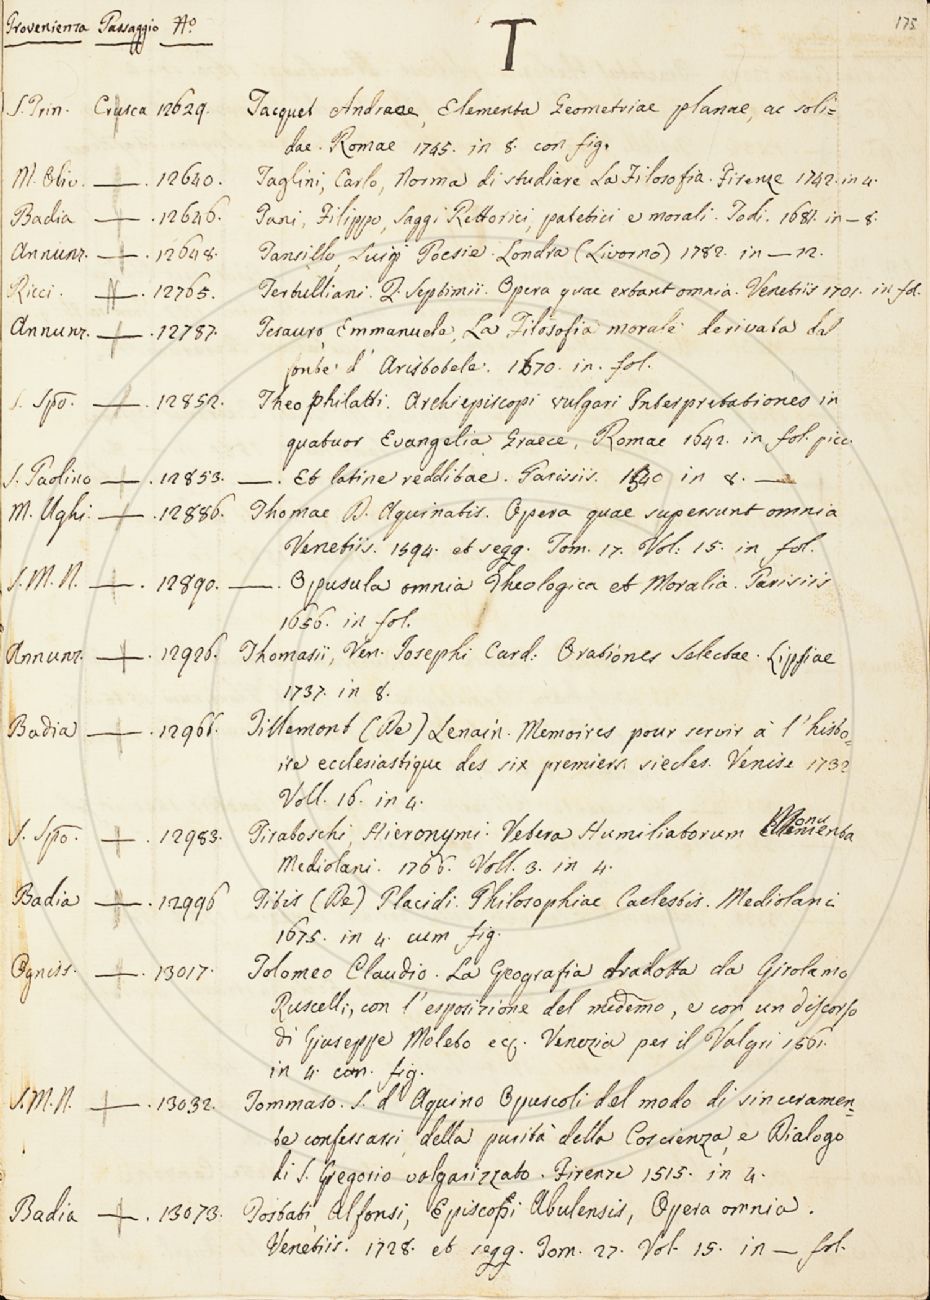 Provenienza Passaggio N.o
T
175
S. Prin. Crusca 12629. Tacquet Andreae, Elementa Geometriae planae, ac soli=
dae. Romae 1745. in 8. con fig.
M. Oliv. —. 12640. Taglini, Carlo, Norma di studiare la Filosofia. Firenze 1742. in 4.
Badia —. 12646. Tani, Filippo, Saggi Rettorici, patetici e morali. Todi. 1681. in — 8.
Annunz. —. 12648. Tansillo, Luigi Poesie. Londra (Livorno) 1782. in — 12.
Ricci. —. 12765. Tertulliani. Q. Septimii. Opera quae extant omnia. Venetiis 1701. in fol.
Annunz. —. 12787. Tesauro, Emmanuele, La Filosofia morale derivata dal
fonte d'Aristotele. 1670. in. fol.
S. Spo. —. 12852. Theophilatti. Archiepiscopi vulgari Interpretationes in
quatuor Evangelia Graece, Romae 1642. in fol. picc.
S. Paolino —. 12853. —. Et latine redditae. Parisiis. 1540 in 8. —
M. Ughi. —. 12886. Thomae D. Aquinatis. Opera quae supersunt omnia
Venetiis. 1594. et segg. Tom. 17. Vol: 15. in fol.
S. M. N. —. 12890. —. Opusula omnia Theologica et Moralia. Parisiis
1656. in fol.
Annunz. —. 12926. Thomasii, Ven. Josephi Card: Orationes Selectae. Lipsiae
1737. in 8.
Badia —. 12966. Tillemont (De) Lenain. Memoires pour servir à l'histo=
ire ecclesiastique des six premiers siecles. Venise 1732
Voll. 16. in 4.
S. Spo. —. 12983. Tiraboschi, Hieronymi. Vetera Humiliatorum Monumenta
Mediolani. 1766. Voll. 3. in 4.
Badia —. 12996 Titis (De) Placidi. Philosophiae Caelestis. Mediolani
1675. in 4. cum fig.
Ogniss. —. 13017. Tolomeo Claudio. La Geografia tradotta da Girolamo
Ruscelli, con l'esposizione del medemo, e con un discorso
di Giuseppe Moleto ecc. Venezia per il Valgri 1561.
in 4. con. fig.
S. M. N. —. 13032. Tommaso. S. d'Aquino Opuscoli del modo di sinceramen=
te confessarsi, della purità della Coscienza, e Dialogo
di S. Gregorio volgarizzato. Firenze 1515. in 4.
Badia —. 13073. Tostati, Alfonsi, Episcopi Abulensis, Opera omnia.
Venetiis. 1728. et segg. Tom. 27. Vol. 15. in — fol.